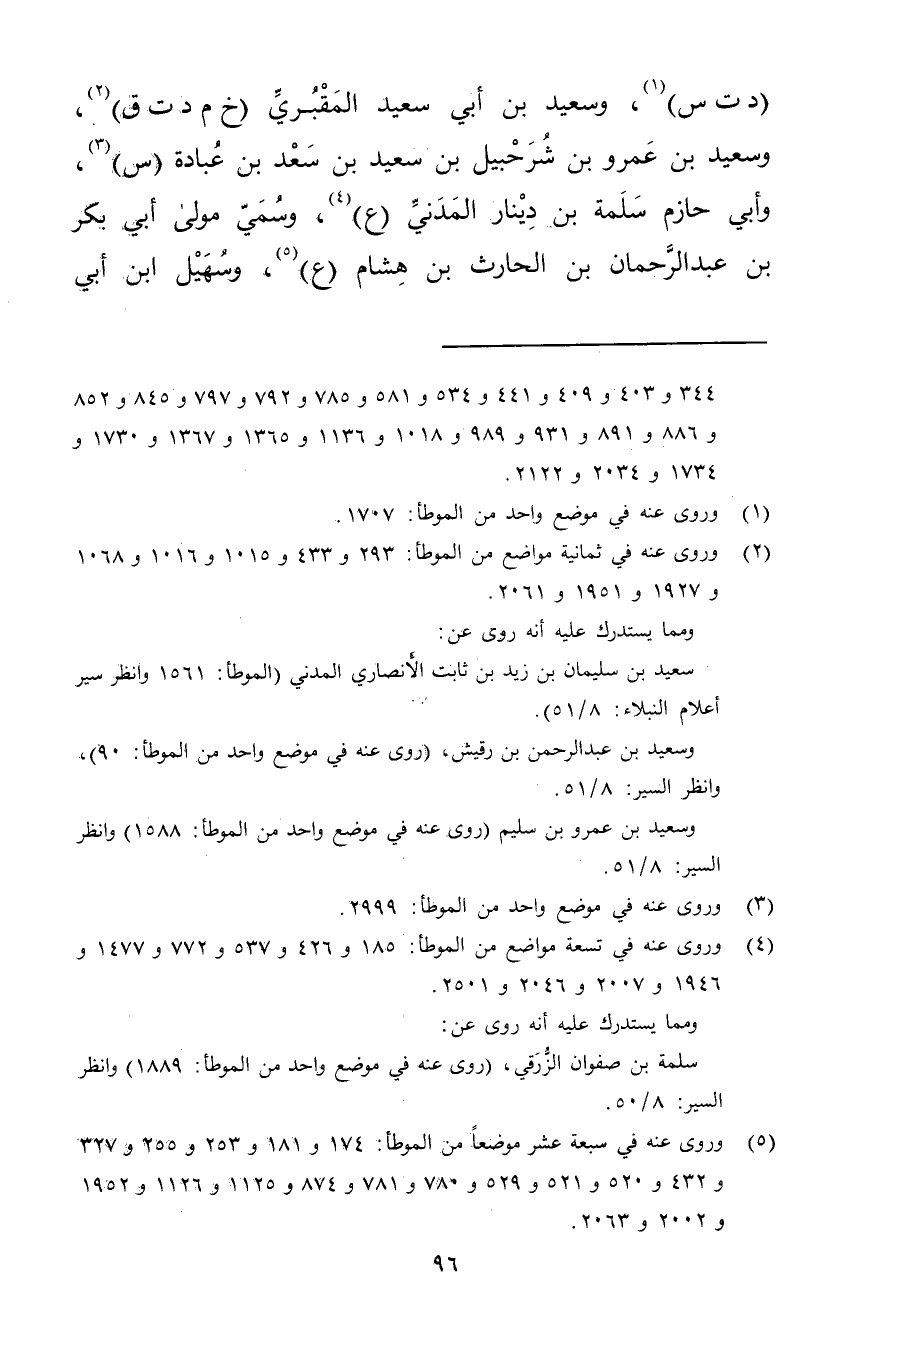 (د ت س)(١)، وسعيد بن أبي سعيد المَقْبُريِّ (خ م د ت ق)(٢)،
وسعيد بن عَمرو بن شُرَحْبيل بن سعيد بن سَعْد بن عُبادة (س)(٣)،
وأبي حازم سَلَمة بن دِيْنار المَدَنيِّ (ع)(٤)، وسُمَيّ مولىٰ أبي بكر
بن عبدالرَّحمان بن الحارث بن هِشام (ع)(٥)، وسُهَيْل ابن أبي
٣٤٤ و ٤٠٣ و ٤٠٩ و ٤٤١ و ٥٣٤ و ٥٨١ و ٧٨٥ و ٧٩٢ و ٧٩٧ و ٨٤٥ و ٨٥٢
و ٨٨٦ و ٨٩١ و ٩٣١ و ٩٨٩ و ١٠١٨ و ١١٣٦ و ١٣٦٥ و ١٣٦٧ و ١٧٣٠ و
١٧٣٤ و ٢٠٣٤ و ٢١٢٢.
(١) وروى عنه في موضع واحد من الموطأ: ١٧٠٧.
(٢) وروى عنه في ثمانية مواضع من الموطأ: ٢٩٣ و ٤٣٣ و ١٠١٥ و ١٠١٦ و ١٠٦٨
و ١٩٢٧ و ١٩٥١ و ٢٠٦١.
ومما يستدرك عليه أنه روى عن:
سعيد بن سليمان بن زيد بن ثابت الأنصاري المدني (الموطأ: ١٥٦١ وانظر سير
أعلام النبلاء: ٥١/٨).
وسعيد بن عبدالرحمن بن رقيش، (روى عنه في موضع واحد من الموطأ: ٩٠)،
وانظر السير: ٥١/٨.
وسعيد بن عمرو بن سليم (روى عنه في موضع واحد من الموطأ: ١٥٨٨) وانظر
السير: ٥١/٨.
(٣) وروى عنه في موضع واحد من الموطأ: ٢٩٩٩.
(٤) وروى عنه في تسعة مواضع من الموطأ: ١٨٥ و ٤٢٦ و ٥٣٧ و ٧٧٢ و ١٤٧٧ و
١٩٤٦ و ٢٠٠٧ و ٢٠٤٦ و ٢٥٠١.
ومما يستدرك عليه أنه روى عن:
سلمة بن صفوان الزُّرَقي، (روى عنه في موضع واحد من الموطأ: ١٨٨٩) وانظر
السير: ٥٠/٨.
(٥) وروى عنه في سبعة عشر موضعاً من الموطأ: ١٧٤ و ١٨١ و ٢٥٣ و ٢٥٥ و ٣٢٧
و ٤٣٢ و ٥٢٠ و ٥٢١ و ٥٢٩ و ٧٨٠ و ٧٨١ و ٨٧٤ و ١١٢٥ و ١١٢٦ و ١٩٥٢
و ٢٠٠٢ و ٢٠٦٣.
٩٦